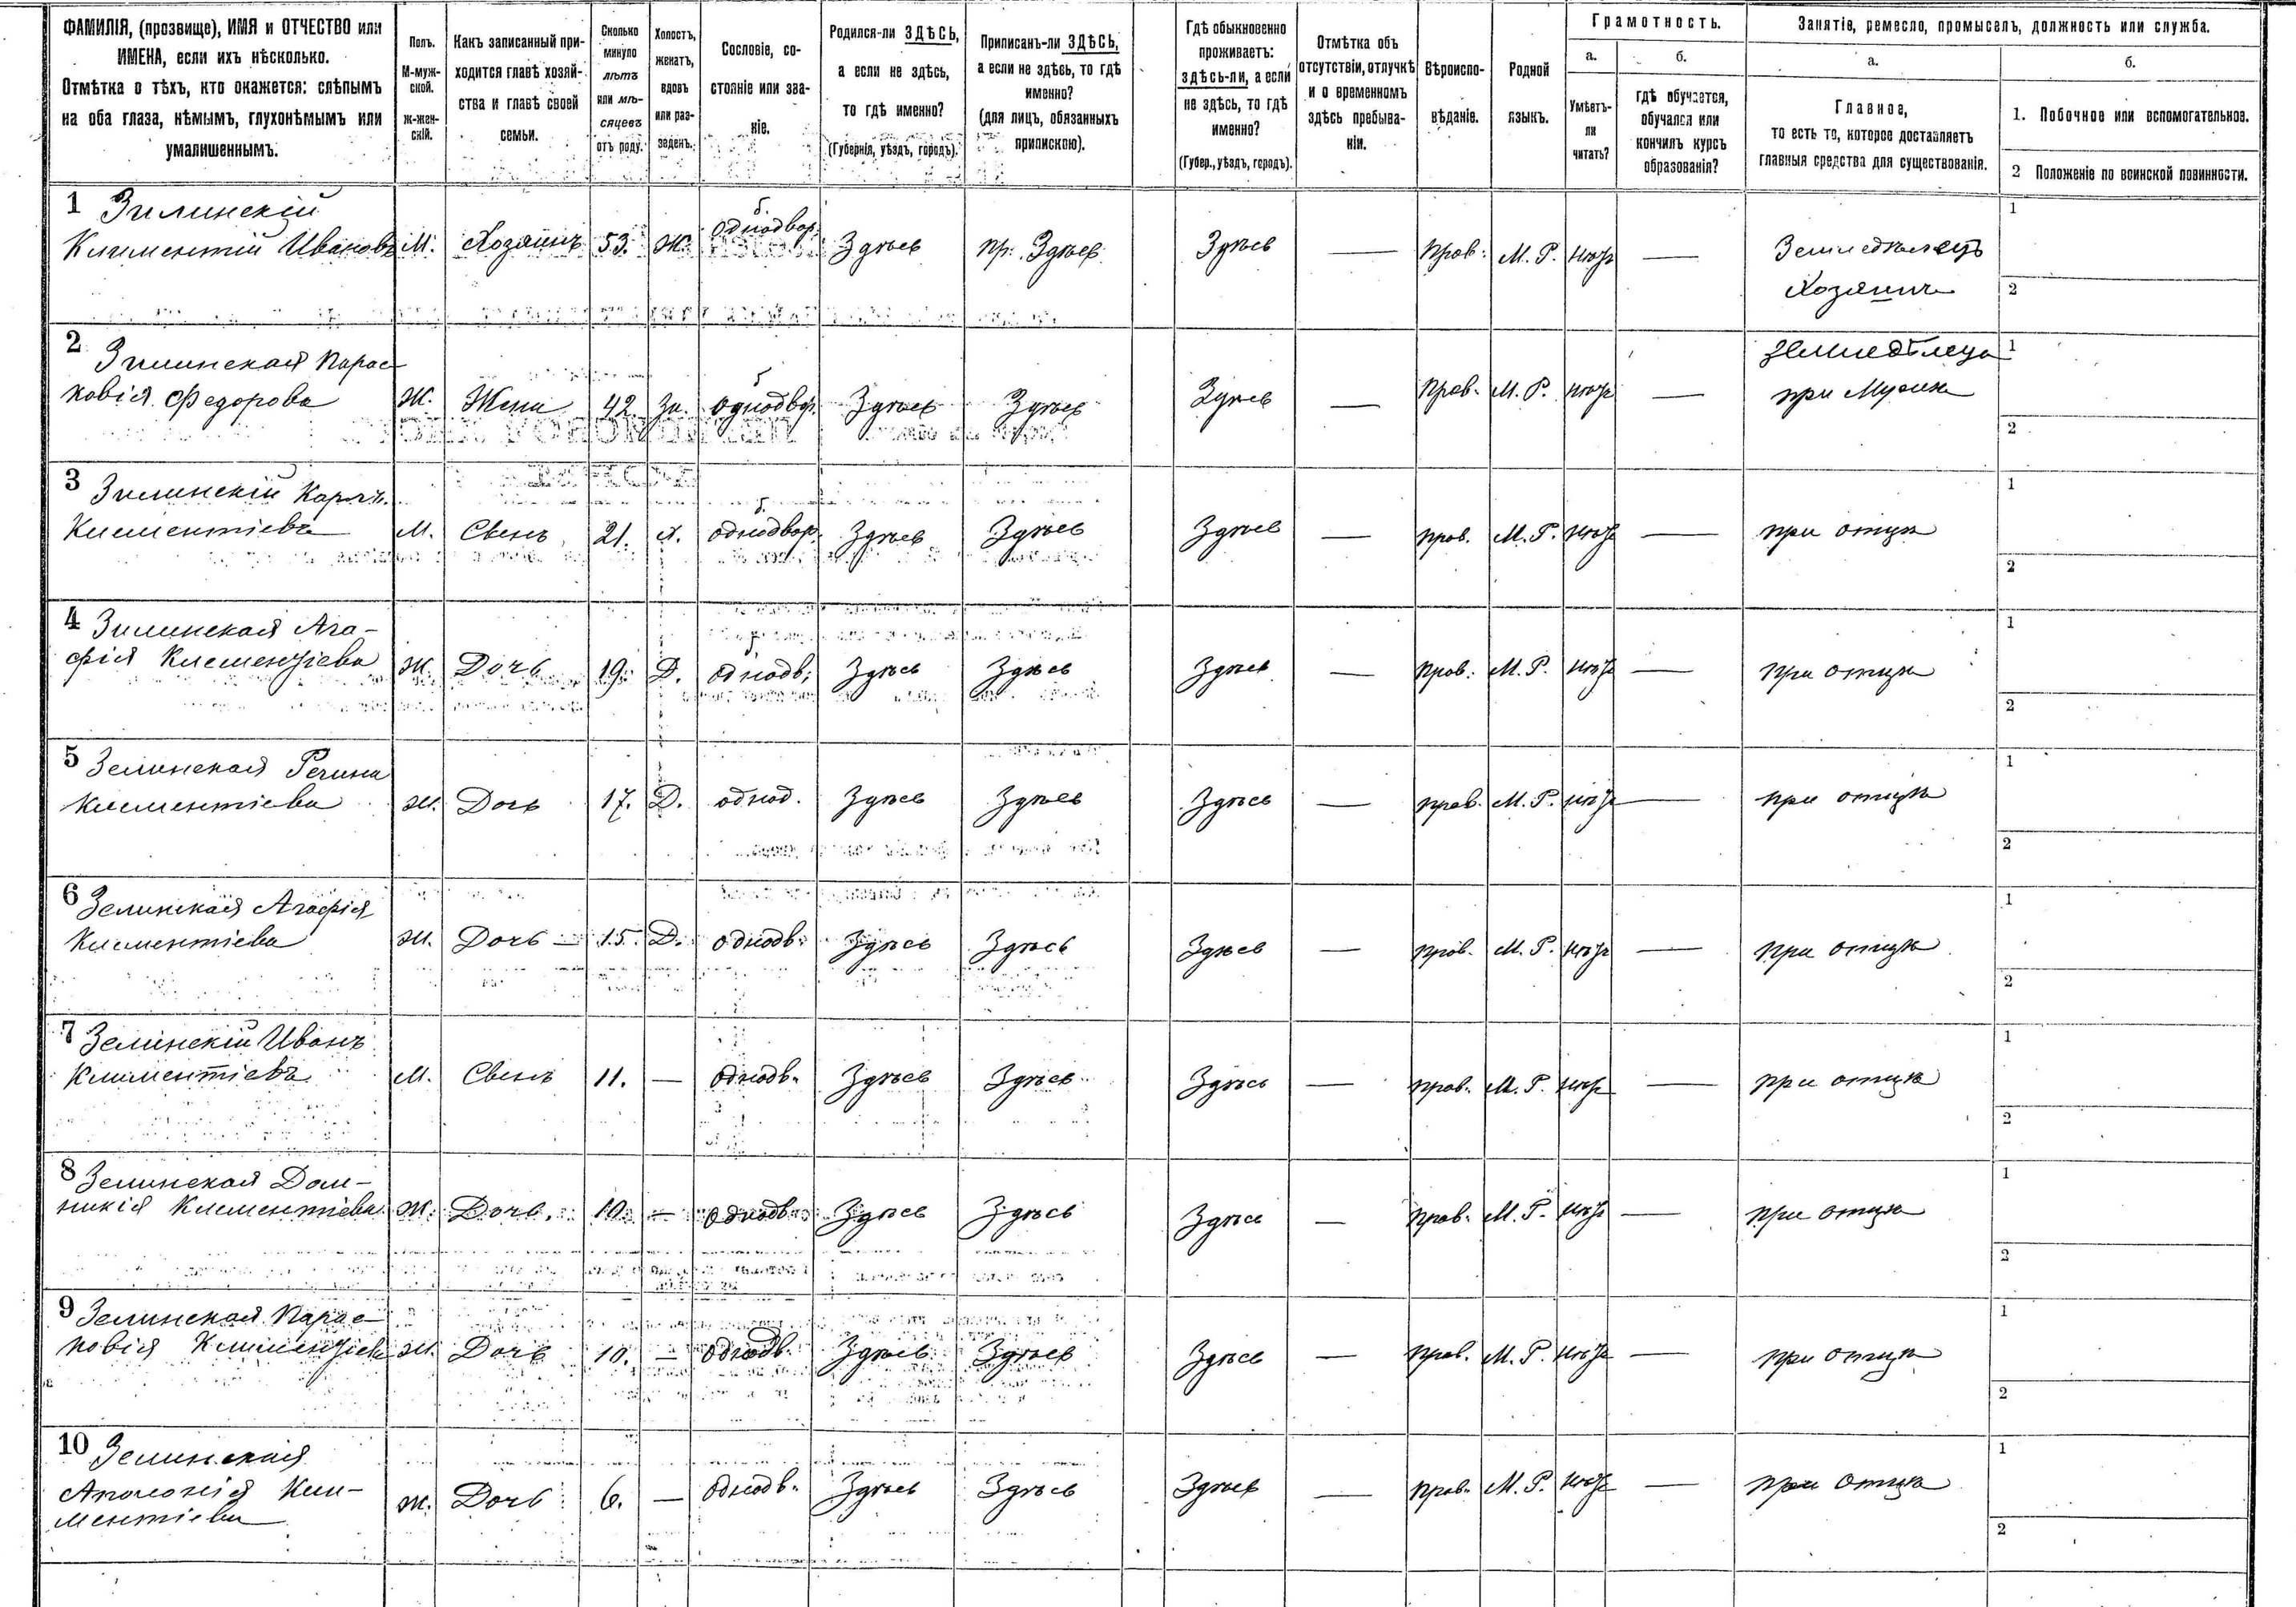 ФАМИЛІЯ, (прозвище), ИМЯ и ОТЧЕСТВО или
ИМЕНА, если ихъ нѣсколько.
Отмѣтка о тѣхъ, кто окажется: слѣпымъ
на оба глаза, нѣмымъ, глухонѣмымъ или
умалишеннымъ.
Полъ.
М-муж-
ской.
Ж-жен-
скій.
Какъ записанный при-
ходится главѣ хозяй-
ства и главѣ своей
семьи.
Сколько
минуло
лѣтъ
или мѣ-
сяцевъ
отъ роду.
Холостъ,
женатъ,
вдовъ
или раз-
веденъ.
Сословіе, со-
стояніе или зва-
ніе.
Родился-ли ЗДѢСЬ,
а если не здѣсь,
то гдѣ именно?
(Губернія, уѣздъ, городъ).
Приписанъ-ли ЗДѢСЬ,
а если не здѣсь, то гдѣ
именно?
(для лицъ, обязанныхъ
припискою).
Гдѣ обыкновенно
проживаетъ:
здѣсь-ли, а если
не здѣсь, то гдѣ
именно?
(Губер., уѣздъ, городъ).
Отмѣтка объ
отсутствіи, отлучкѣ
и о временномъ
здѣсь пребыва-
ніи.
Вѣроиспо-
вѣданіе.
Родной
языкъ.
Грамотность.
а.
Умѣетъ-
ли
читать?
б.
гдѣ обучается,
обучался или
кончилъ курсъ
образованія?
Занятіе, ремесло, промыселъ, должность или служба.
а.
Главное,
то есть то, которое доставляетъ
главныя средства для существованія.
б.
1. Побочное или вспомогательное.
2 Положеніе по воинской повинности.
1 Зилинскій
Климентій Ивановъ М. Хозяинъ 53. Ж. б. однодвор. Здѣсь пр. Здѣсь Здѣсь — Прав. М. Р. нѣтъ — Земледѣлецъ
Хозяинъ
1
2
2 Зилинская Парас-
ковія Федорова Ж. Жена 42 За. б. однодвор. Здѣсь Здѣсь Здѣсь — Прав. М. Р. нѣтъ — земледѣлеца
при Мужѣ
1
2
3 Зилинскій Карлъ
Климентіевъ М. Свенъ 21. Х. б. однодвор. Здѣсь Здѣсь Здѣсь — прав. М. Р. нѣтъ — при отцѣ
1
2
4 Зилинская Ага-
фія Клементіева Ж. Дочь 19. Д. б. однодв. Здѣсь Здѣсь Здѣсь — прав. М. Р. нѣтъ — при отцѣ
1
2
5 Зелинская Регина
Клементіева ж. Дочь 17. Д. однод. Здѣсь Здѣсь Здѣсь — прав. М. Р. нѣтъ — при отцѣ
1
2
6 Зелинская Агафія
Клементіева ж. Дочь 15. Д. однодв. Здѣсь Здѣсь Здѣсь — прав. М. Р. нѣтъ — при отцѣ
1
2
7 Зелинскій Иванъ
Климентіевъ М. Свенъ 11. — однодв. Здѣсь Здѣсь Здѣсь — прав. М. Р. нѣтъ — при отцѣ
1
2
8 Зелинская Дом-
никія Клементіева Ж. Дочь. 10. — однодв. Здѣсь Здѣсь Здѣсь — прав. М. Р. нѣтъ — при отцѣ
1
2
9 Зелинская Парас-
ковія Климентіева ж. Дочь 10. — однодв. Здѣсь Здѣсь Здѣсь — прав. М. Р. нѣтъ — при отцѣ
1
2
10 Зелинская
Аполонія Кли-
ментіева ж. Дочь 6. — однодв. Здѣсь Здѣсь Здѣсь — прав. М. Р. нѣтъ — при отцѣ
1
2